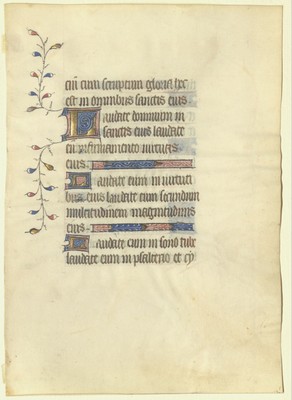 ciū cum scriptum gloria hec
est in omnibus sanctis eius
Laudate dominum in
sanctis eius laudate
eum in firmamento virtutis
eius.
Laudate eum in virtuti
bus eius laudate eum secundum
multitudinem magnitudinis
eius.
Laudate eum in sono tube
laudate eum in psalterio et cy